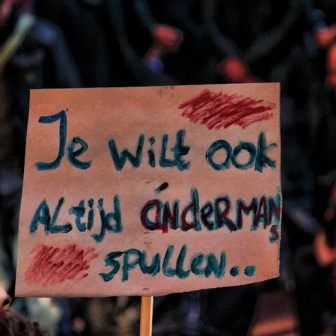 Je wilt ook
ALtijd ánderMANs
spullen..